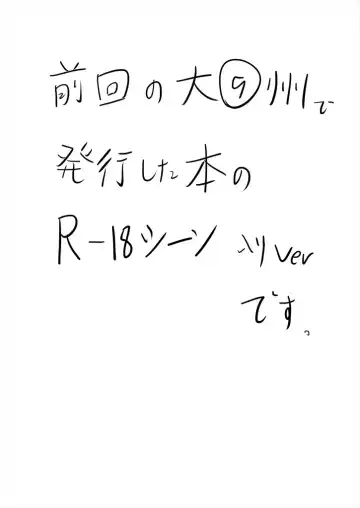 前回の大⑨州で
発行した本の
R-18シーン 入りver
です。